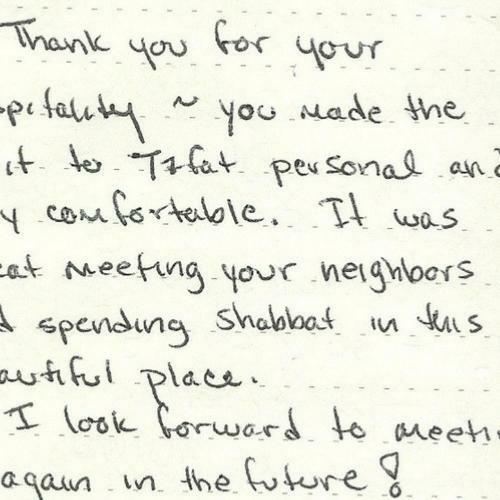 Thank you for your
pitality ~ you made the
it to Tzfat personal and
y comfortable. It was
eat meeting your neighbors
d spending Shabbat in this
autiful place.
I look forward to meeti
again in the future!